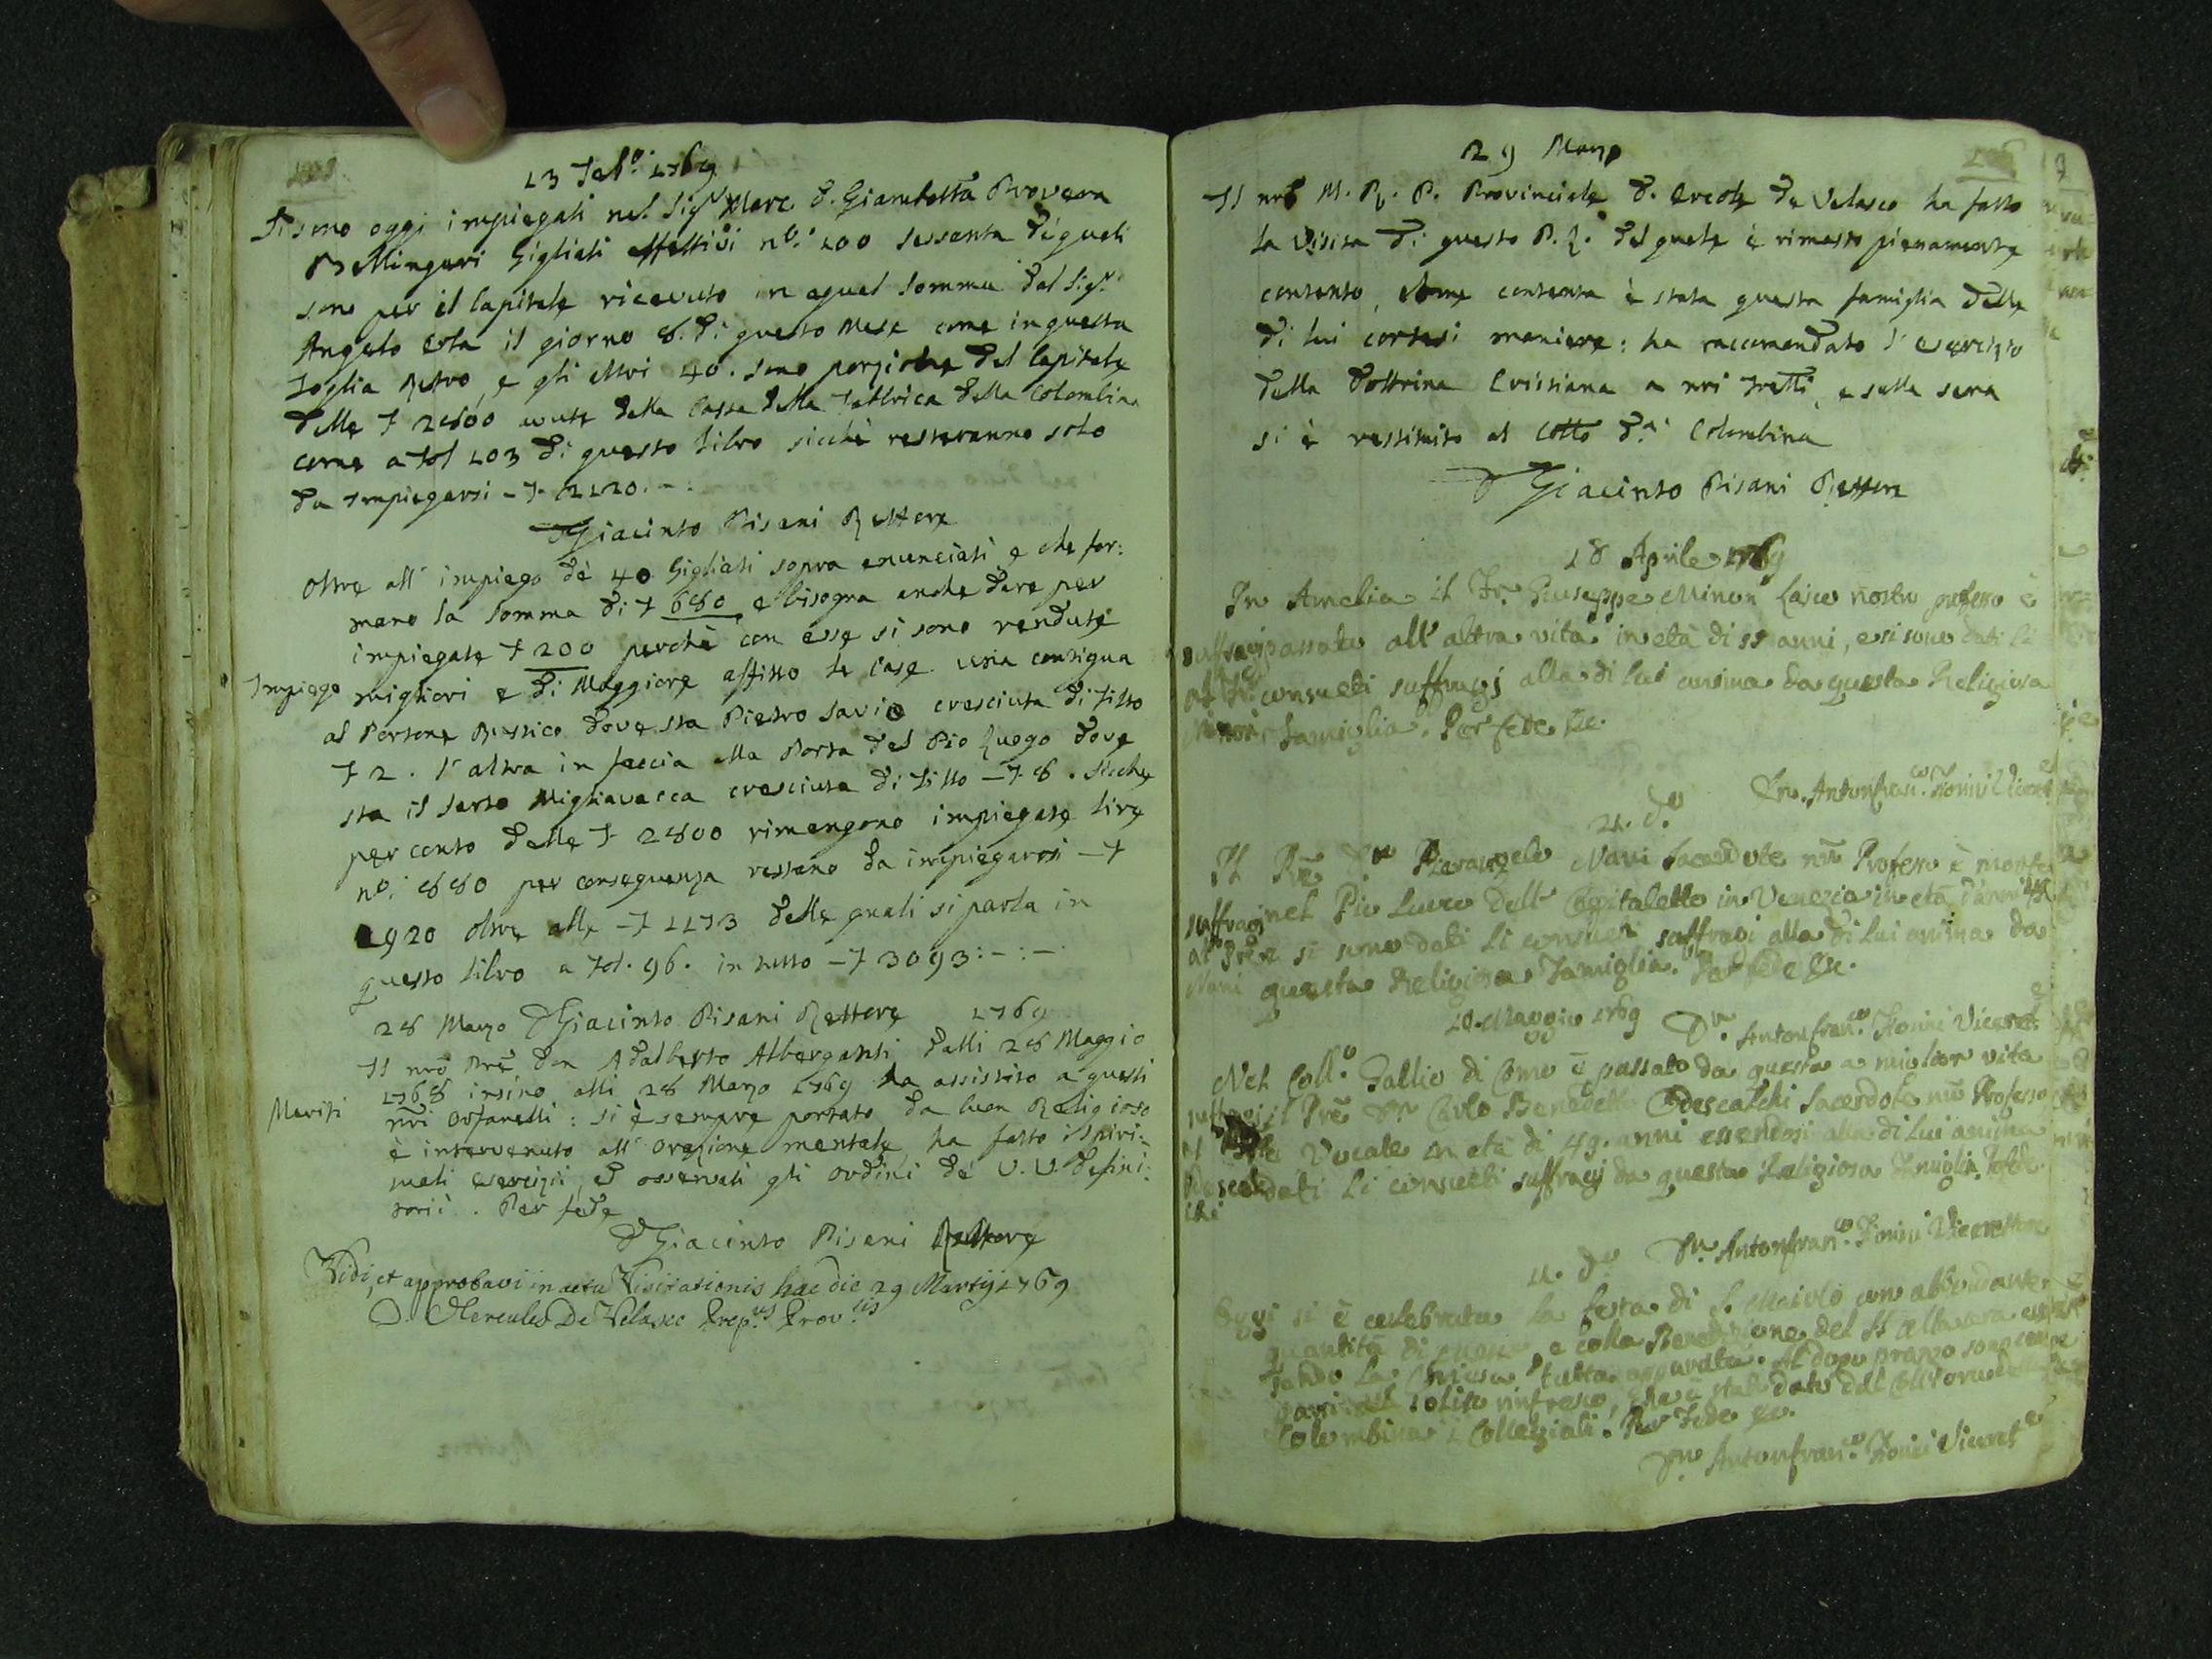 13 Feb.o 1769
Si sono oggi impiegati nel Sig.r Marc. D. Giambatta Provera
Bellingeri Gigliati effettivi n.o 100 sessanta de quali
sono per il Capitale ricevuto in egual somma dal Sig.r
Angelo Cola il giorno 8. di questo Mese come in questa
Foglia Retro, e gli altri 40. sono porzione del Capitale
delle £ 2800 avute dalla Cassa della Fabbrica della Colombina
come a Fol 103 di questo libro sicchè resteranno solo
da Impiegarsi - £ 2120. - :
D Giacinto Pisani Rettore
Oltre all' impiego dè 40 Gigliati sopra enunciati e che for:
mano la somma di £ 680 e bisogna anche dare per
impiegate £ 200 perchè con esse si sono rendute
Impiego
migliori e di Maggiore affitto le Case una contigua
al Portone Rustico dove sta Pietro Savio cresciuta di fitto
£ 2. l' altra in faccia alla Porta del Pio Luogo dove
sta il Sarto Migliavacca cresciuta di fitto - £ 8. Sicche
per conto delle £ 2800 rimangono impiegate lire
n.o 880 per conseguenza restano da impiegarsi - £
1920 oltre alle - £ 1173 delle quali si parla in
questo libro a Fol. 96. in tutto - £ 3093 : - : -
28 Marzo D Giacinto Pisani Rettore 1769
Il nro Pre Don Adalberto Alberganti dalli 28 Maggio
1768 insino alli 28 Marzo 1769 ha assistito a questi
Meriti
nri Orfanelli : si è sempre portato da buon Religioso
è intervenuto all' orazione mentale, ha fatto i spiri:
tuali esercizii, ed osservati gli ordini dé V. V. Defini:
torii. Per fede
D Giacinto Pisani Rettore
Vidi, et approbavi in actu Visitationis hac die 29 Martij 1769
D. Hercules De Velasco Prep.us Prov.lis
29 Marzo
Il nro M. R. P. Provinciale D. Ercole De Velasco ha fatto
la Visita di questo P. L. del quale è rimasto pienamente
contento, come contenta è stata questa famiglia delle
di lui cortesi maniere : ha raccomandato l' esercizio
della Dottrina Cristiana a nri Fratti, e sulla sera
si è restituito al Collo d.a Colombina
D Giacinto Pisani Rettore
18 Aprile 1769
In Amelia il Fr. Giuseppe Minon Laico nostro professo è
suffragj passato all' altra vita in età di 55 anni, e si sono dati li
al Fr. consueti suffragj alla di lui anima da questa Religiosa
Minon Famiglia. Per fede &c.
Dn. Antonfran.co Vicerett.e
21. d.o
Il Prē D.n Pierangelo Nani Sacerdote nro Professo è morto
suffragj nel Pio Luoco dell' Ospitaletto in Venezia in età d'anni
al Prē e si sono dati li consueti suffragi alla di lui anima da
Nani questa Religiosa Famiglia. Per fede &c.
10. Maggio 1769 D.n Antonfran.co Vicerett.e
Nel Coll.o Gallio di Como è passato da questa a miglior vita
suffragj il Prē D.n Carlo Benedetto Odescalchi Sacerdote nro Professo
e Vocale in età di 49. anni essendosi alla di lui anima
Odescal dati li consueti suffragj da questa Religiosa Famiglia.
chi
11. d.o D.n Antonfran.co Vicerettore
Oggi si è celebrata la festa di S. Maiolo con abbondante
quantità di messe, e colla Benedizione del SS. alla sera
tando la Chiesa tutta apparata. Al dopo pranzo sono
solito rinfresco, che è stato dato dal Coll.o della
Colombina i Collegiali. Per Fede &c.
D.n Antonfran.co Vicerett.e